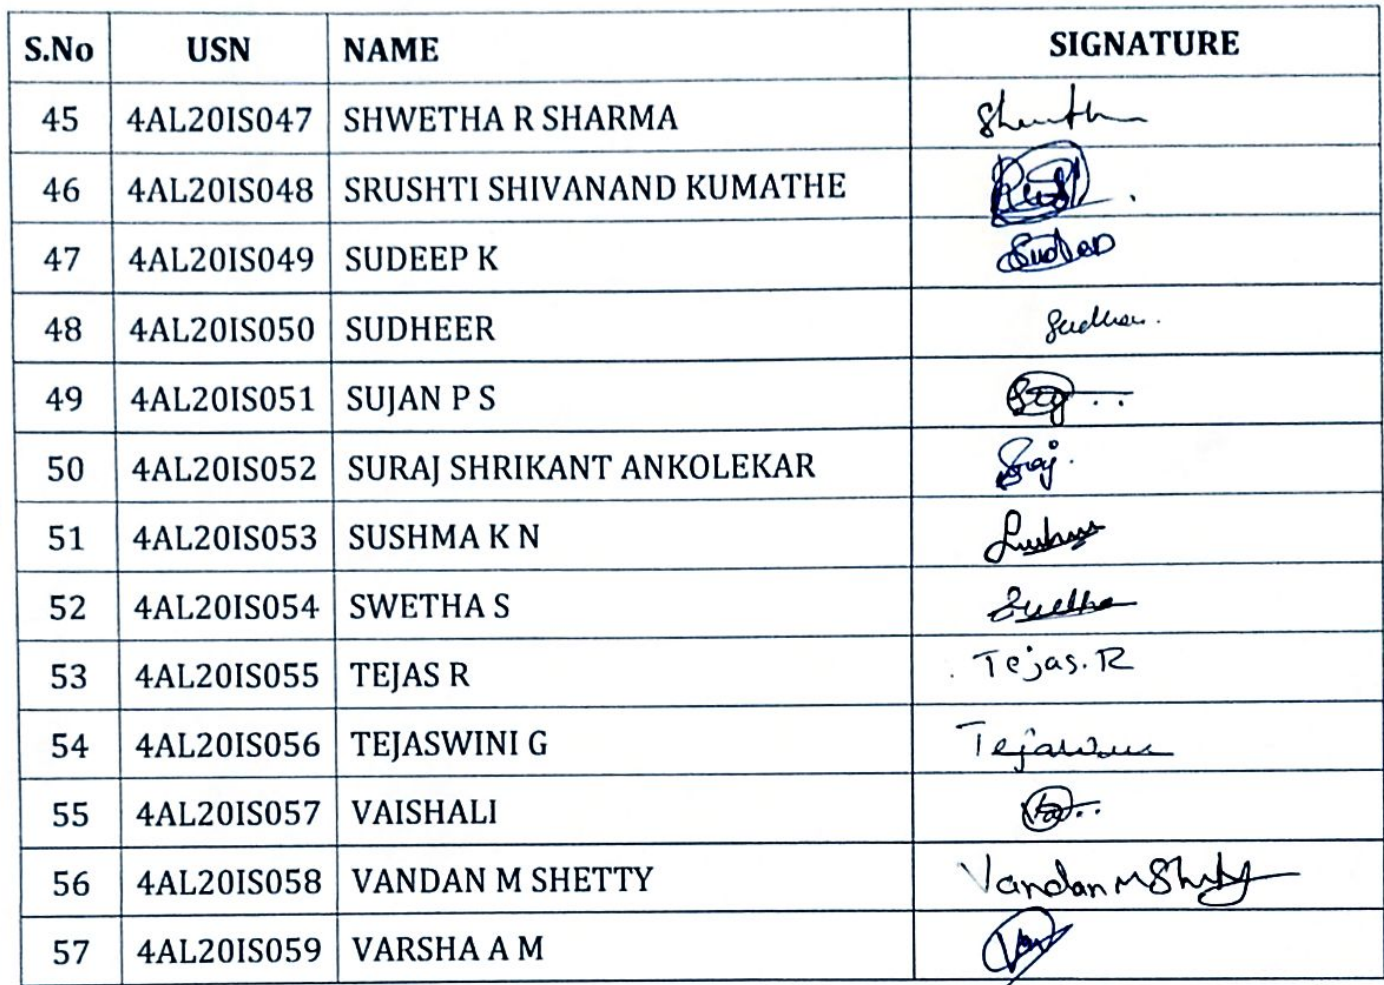 S.No USN NAME SIGNATURE
45 4AL20IS047 SHWETHA R SHARMA
46 4AL20IS048 SRUSHTI SHIVANAND KUMATHE
47 4AL20IS049 SUDEEP K
48 4AL20IS050 SUDHEER
49 4AL20IS051 SUJAN P S
50 4AL20IS052 SURAJ SHRIKANT ANKOLEKAR
51 4AL20IS053 SUSHMA K N
52 4AL20IS054 SWETHA S
53 4AL20IS055 TEJAS R Tejas.R
54 4AL20IS056 TEJASWINI G
55 4AL20IS057 VAISHALI
56 4AL20IS058 VANDAN M SHETTY Vandan M Shetty
57 4AL20IS059 VARSHA A M